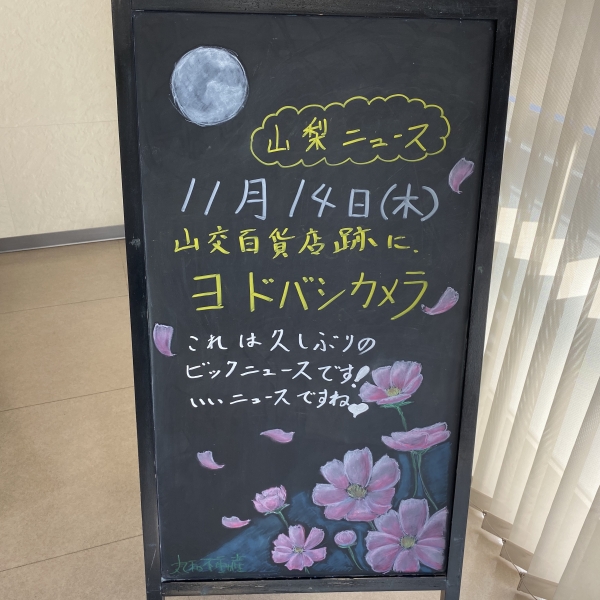 山梨ニュース
11月14日(木)
山交百貨店跡に、
ヨドバシカメラ
これは久しぶりの
ビックニュースです!
いいニュースですね